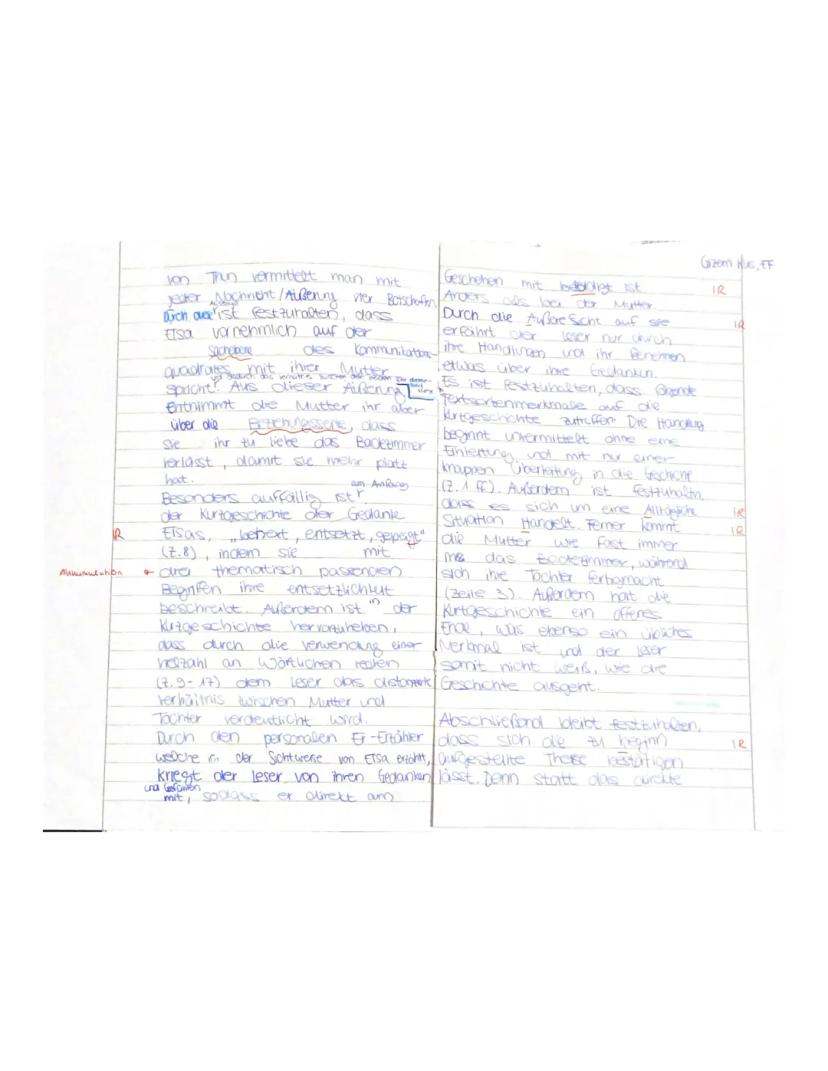 von Thun vermittelt man mit
jeder Nachricht/Äußerung vier Botschaften
ist festzuhalten, dass
Elsa vornehmlich auf der
Sachebene des Kommunikations-
quadrates mit ihrer Mutter
spricht. Aus dieser Äußerung
Entnimmt die Mutter ihr aber
über die Beziehungsebene, dass
sie ihr zu liebe das Badezimmer
verlässt, damit sie mehr platz
hat.
am Anfang
Besonders auffällig ist
der Kurtgeschichte der Gedanke
IR Elsas, „behext, entsetzt,
(Z.8), indem sie mit
Akkumulation drei thematisch passenden
Begriffen ihre entsetzlichkeit
beschreibt. Außerdem ist in der
Kurzgeschichte hervorzuheben,
dass durch die verwendung einer
vielzahl an wörtlichen reden
(Z. 9-17) dem Leser das distanzierte
Verhältnis zwischen Mutter und
Tochter verdeutlicht wird.
Durch den personalen Er-Erzähler
welche in der Sichtweise von Elsa erzählt,
kriegt der Leser von ihren Gedanken
und Gefühlen
mit, sodass er direkt am
Gizem EF
Geschehen mit beteiligt ist. IR
Anders als bei der Mutter.
Durch die Außere Sicht auf sie IR
erfährt der leser nur durch
ihre Handlungen und ihr Benehmen
etwas über ihre Gedanken.
Es ist festzuhalten, dass folgende
Textsortenmerkmale auf die
Kurtgeschichte zutreffen Die Handlung
beginnt unvermittelt ohne eine
Einleitung und mit nur einer
knappen Überleitung in die Geschichte
(Z. 1 ff). Außerdem ist festzuhalten,
dass es sich um eine Alltägliche IR
Situation Handelt. Ferner kommt IR
die Mutter wie fast immer
das Badezimmer, während
sich ihre Tochter fertigmacht
(Zeile 3). Außerdem hat die
Kurtgeschichte ein offenes
Ende, was ebenso ein übliches
Merkmal ist und der leser
somit nicht weiß, wie die
Geschichte ausgeht.
Abschließend bleibt festzuhalten,
dass sich die zu beginn IR
aufgestellte These bestätigen
lässt. Denn statt das